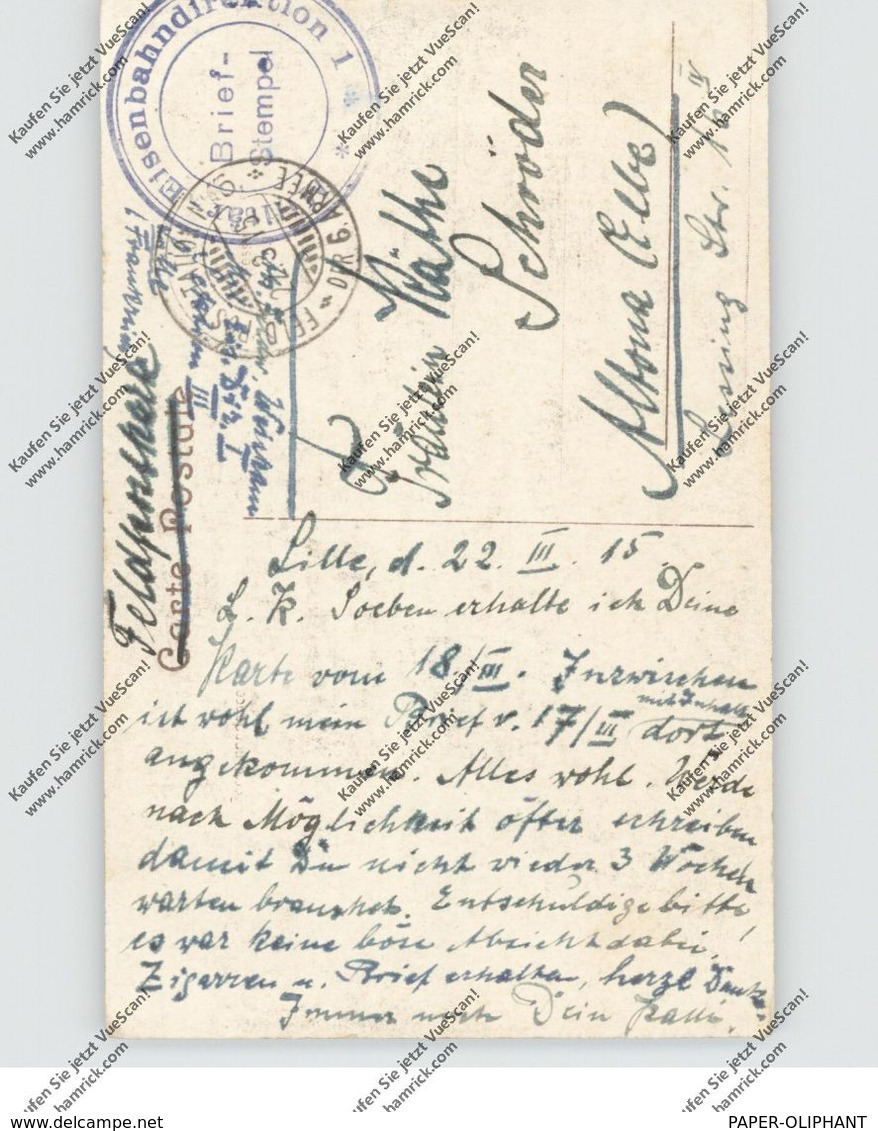 Eisenbahndirektion 1
Brief-
Stempel
DER 6. ARMEE
Feldpostkarte
Carte Postale
Lille
III
Fräulein Käthe
Schröder
Altona (Elbe)
Str. 16 IV
Lille, d. 22. III. 15.
L. K. Soeben erhalte ich Deine
Karte vom 18/III. Inzwischen
ist wohl mein Brief v. 17/III mit Inhalt dort
angekommen. Alles wohl. Werde
nach Möglichkeit öfter schreiben
damit Du nicht wieder 3 Wochen
warten brauchst. Entschuldige bitte,
es war keine böse Absicht dabei!
Zigarren u. Brief erhalten, herzl Dank.
Immer noch Dein Kalli.
Kaufen Sie jetzt VueScan!
www.hamrick.com
www.delcampe.net
PAPER-OLIPHANT